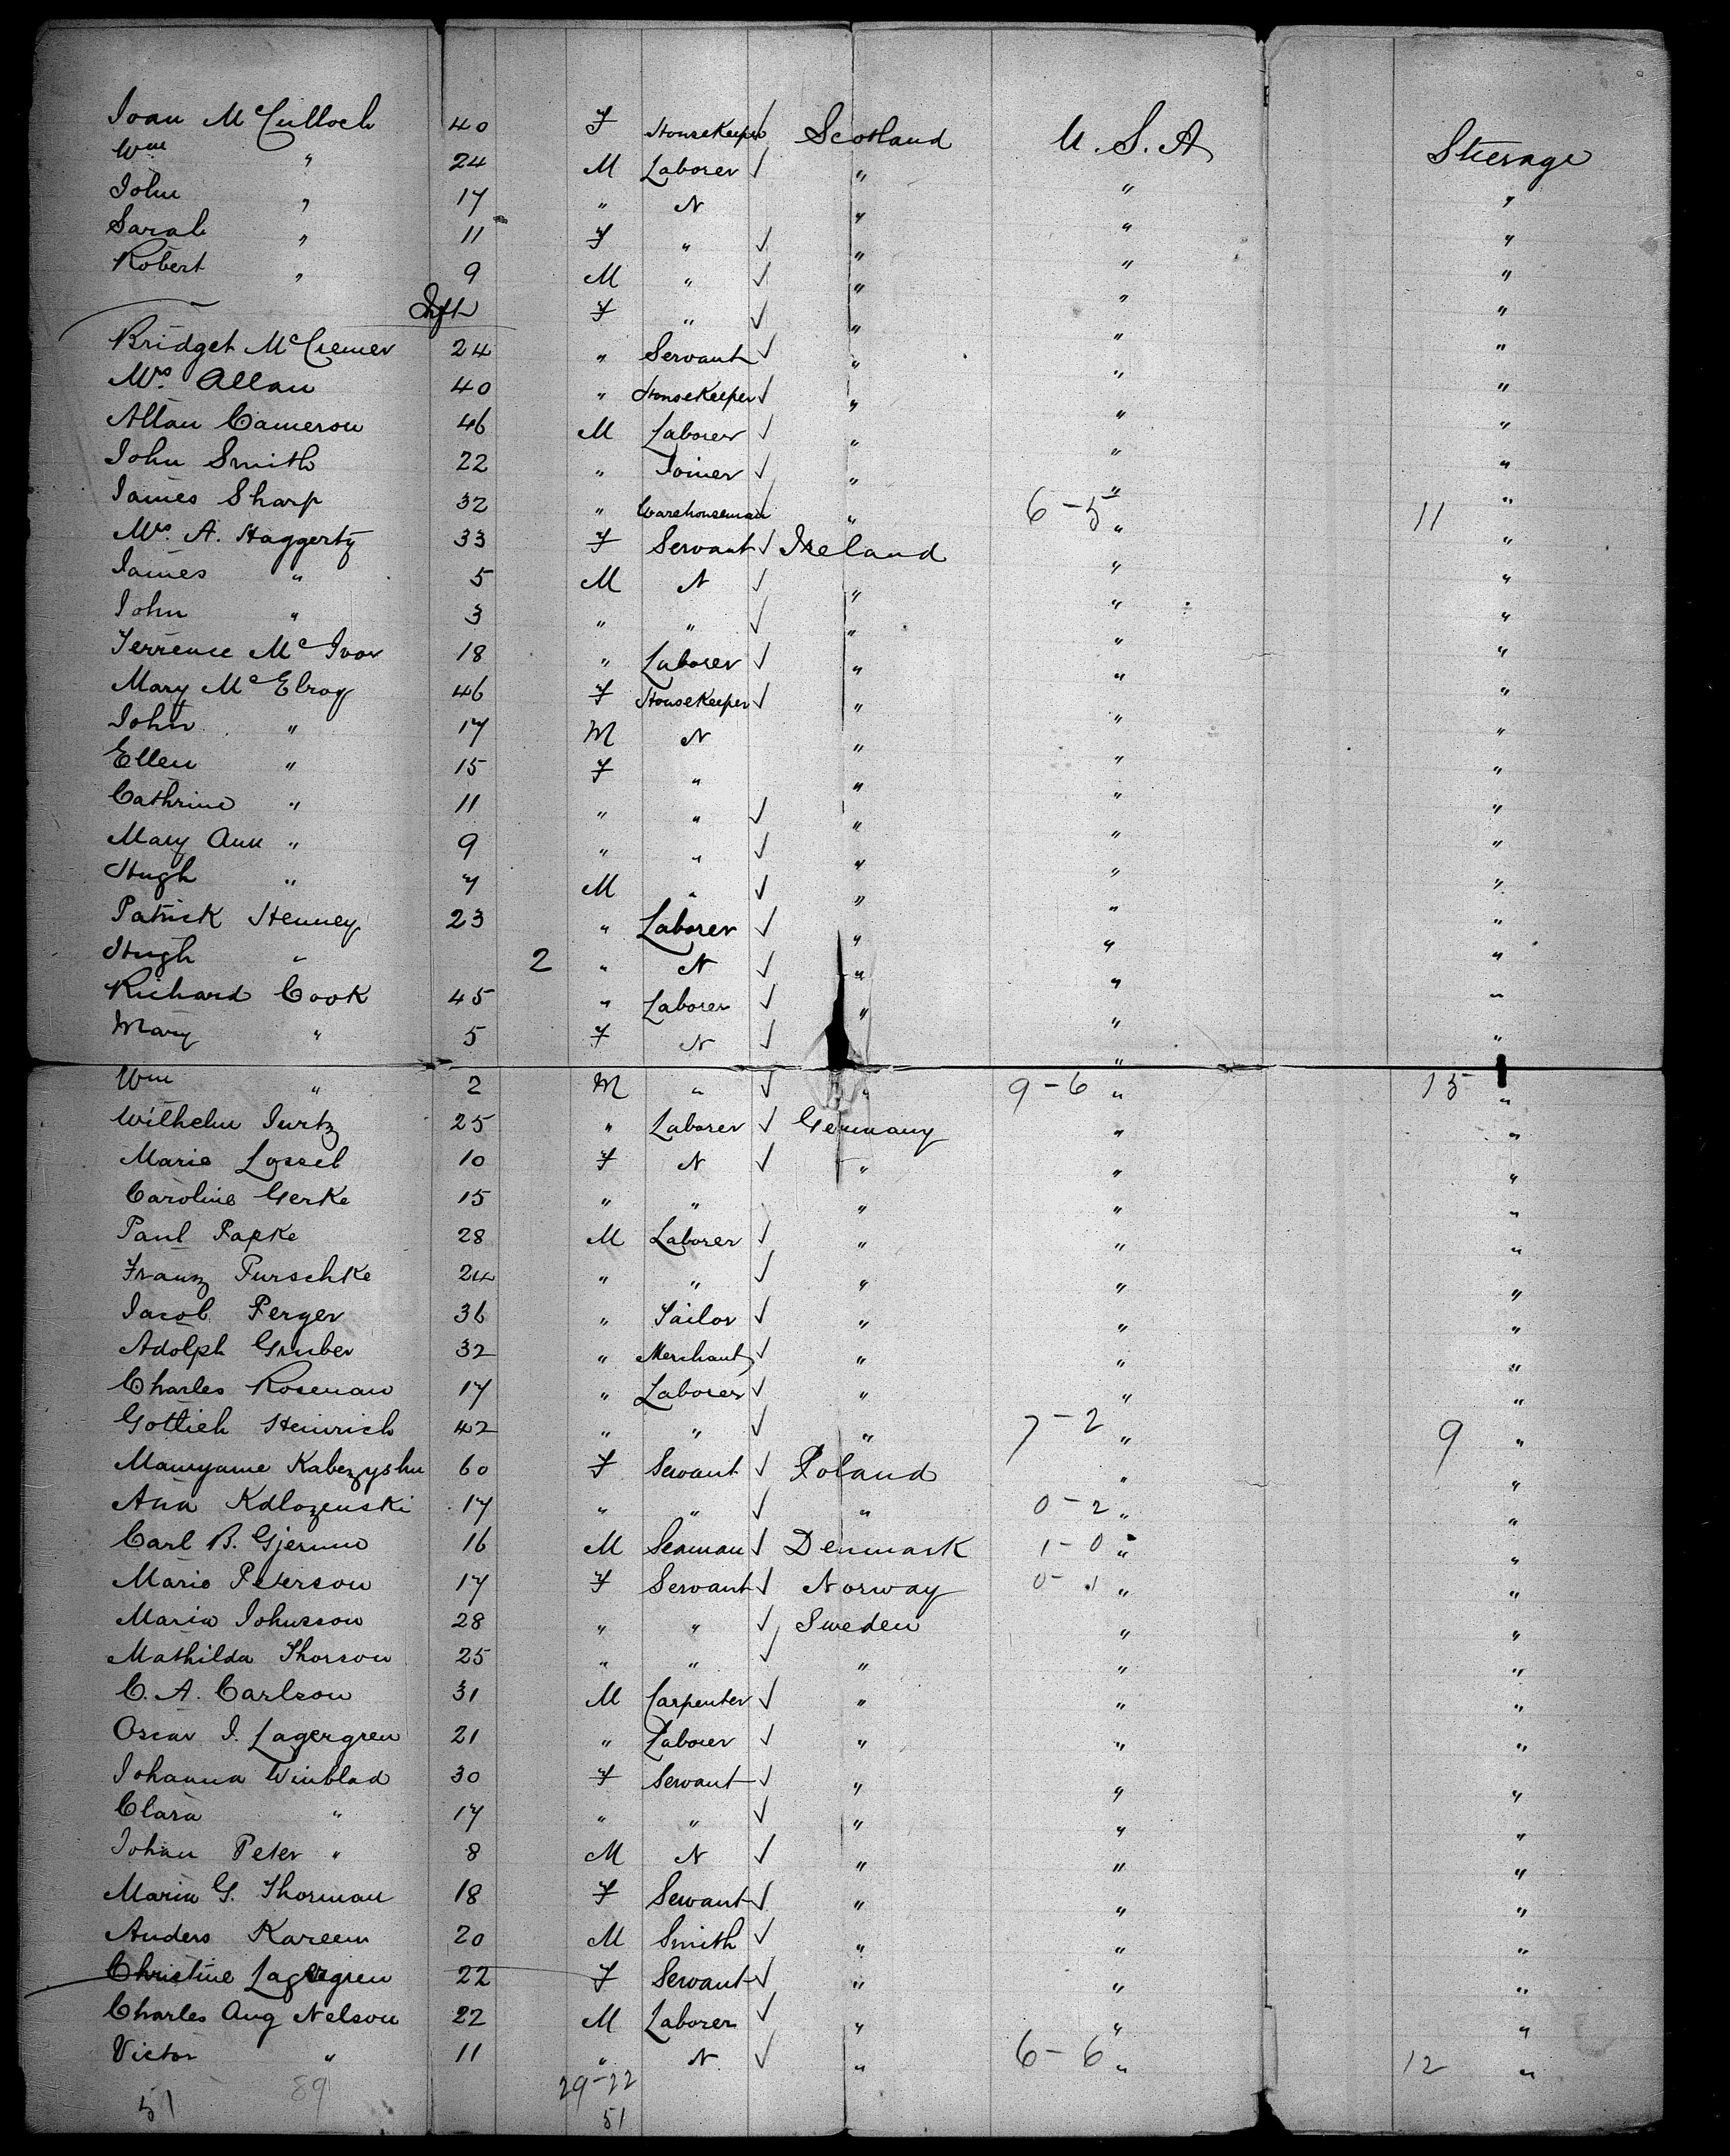 Joan McCulloch 40 F Housekeeper ✓ Scotland U.S.A Steerage
Wm " 24 M Laborer ✓ " " "
John " 17 " N " " "
Sarah " 11 F " ✓ " " "
Robert " 9 M " ✓ " " "
Inft F " ✓ " " "
Bridget 24 " Servant ✓ " " "
Mrs. Allan 40 " Housekeeper ✓ " " "
Allan Cameron 46 M Laborer ✓ " " "
John Smith 22 " Joiner ✓ " " "
James Sharp 32 " Warehouseman ✓ " 6-5 " 11 "
Mrs. A. Haggerty 33 F Servant ✓ Ireland " "
James " 5 M N ✓ " " "
John " 3 " " ✓ " " "
Terrence McIvor 18 " Laborer ✓ " " "
Mary McElroy 46 F Housekeeper ✓ " " "
John " 17 M N " " "
Ellen " 15 F " " " "
Cathrine " 11 " " ✓ " " "
Mary Ann " 9 " " ✓ " " "
Hugh " 7 M " ✓ " " "
Patrick Henney 23 " Laborer ✓ " " "
Hugh " 2 " N ✓ " " "
Richard Cook 45 " Laborer ✓ " " "
Mary " 5 F N ✓ " " "
Wm " 2 M " ✓ " 9-6 " 15 "
Wilhelm 25 " Laborer ✓ Germany " "
Marie 10 F N ✓ " " "
Caroline Gerke 15 " " " " "
Paul Papke 28 M Laborer ✓ " " "
Franz Purschke 24 " " ✓ " " "
Jacob Perger 36 " Tailor ✓ " " "
Adolph Gruber 32 " Merchant ✓ " " "
Charles Rosenau 17 " Laborer ✓ " " "
Gottlieb Heinrich 42 " " ✓ " 7-2 " 9 "
60 F Servant ✓ Poland " "
Ana 17 " " ✓ " 0-2 " "
Carl B. 16 M Seaman ✓ Denmark 1-0 " "
Marie Peterson 17 F Servant ✓ Norway 0-1 " "
Maria Johnsson 28 " " ✓ Sweden " "
Mathilda Thorson 25 " " ✓ " " "
C. A. Carlson 31 M Carpenter ✓ " " "
Oscar J. Lagergren 21 " Laborer ✓ " " "
Johanna Winblad 30 F Servant ✓ " " "
Clara " 17 " " ✓ " " "
Johan Peter " 8 M N ✓ " " "
Maria G. Thorman 18 F Servant ✓ " " "
Anders Kareem 20 M Smith ✓ " " "
Christine Lagergren 22 F Servant ✓ " " "
Charles Aug Nelson 22 M Laborer ✓ " " "
Victor " 11 " N ✓ " 6-6 " 12 "
89 29-22
51 51